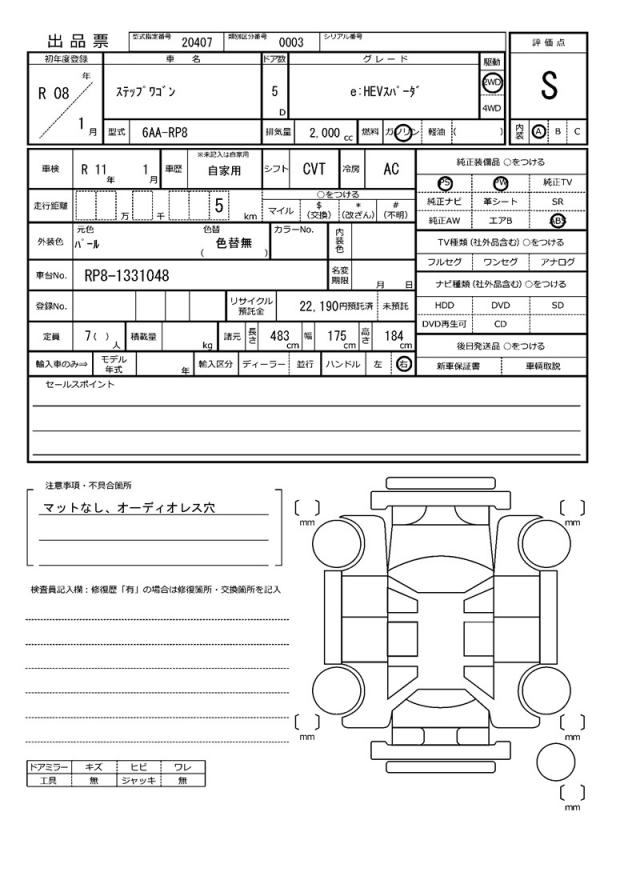 出品票
型式指定番号 20407 類別区分番号 0003 シリアル番号
評価点
S
内装 A B C
初年度登録 車名 ドア数 グレード 駆動
R 08 年 1 月
ステップワゴン 5 D e:HEVスパーダ 2WD 4WD
型式 6AA-RP8 排気量 2,000 cc 燃料 ガソリン 軽油 ( )
車検 R 11 年 1 月 車歴 ※未記入は自家用 自家用 シフト CVT 冷房 AC
走行距離 万 千 5 km
○をつける
マイル $(交換) *(改ざん) #(不明)
外装色 元色 パール 色替 色替無 ( ) カラーNo. 内装色
車台No. RP8-1331048 名変期限 月 日
登録No. リサイクル預託金 22,190円預託済 未預託
定員 7( )人 積載量 kg 諸元 長さ 483 cm 幅 175 cm 高さ 184 cm
輸入車のみ⇒ モデル年式 年 輸入区分 ディーラー 並行 ハンドル 左 右
純正装備品 ○をつける
PS PW 純正TV
純正ナビ 革シート SR
純正AW エアB ABS
TV種類(社外品含む)○をつける
フルセグ ワンセグ アナログ
ナビ種類(社外品含む)○をつける
HDD DVD SD
DVD再生可 CD
後日発送品 ○をつける
新車保証書 車輌取説
セールスポイント
注意事項・不具合箇所
マットなし、オーディオレス穴
検査員記入欄：修復歴「有」の場合は修復箇所・交換箇所を記入
ドアミラー キズ ヒビ ワレ
工具 無 ジャッキ 無
〔 〕 mm
〔 〕 mm
〔 〕 mm
〔 〕 mm
〔 〕 mm